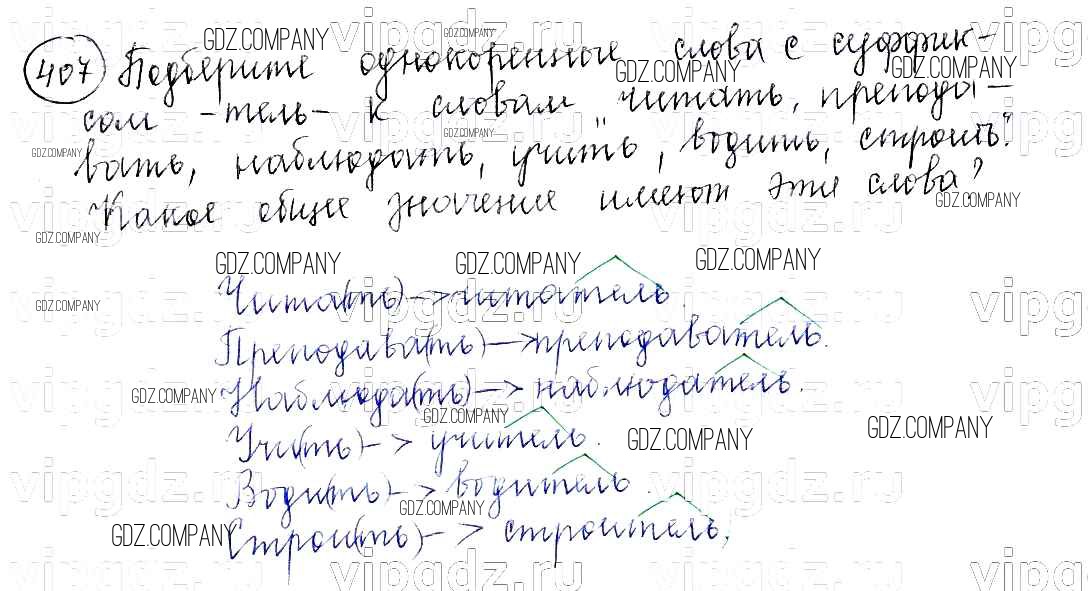 407 Подберите однокоренные слова с суффик-
сом -тель- к словам "читать, препода-
вать, наблюдать, учить, водить, строить".
Какое общее значение имеют эти слова?
Чита(ть) -> читатель.
Преподава(ть) -> преподаватель.
Наблюда(ть) -> наблюдатель.
Учи(ть) -> учитель.
Води(ть) -> водитель.
Строи(ть) -> строитель.
GDZ.COMPANY
vipgdz.ru